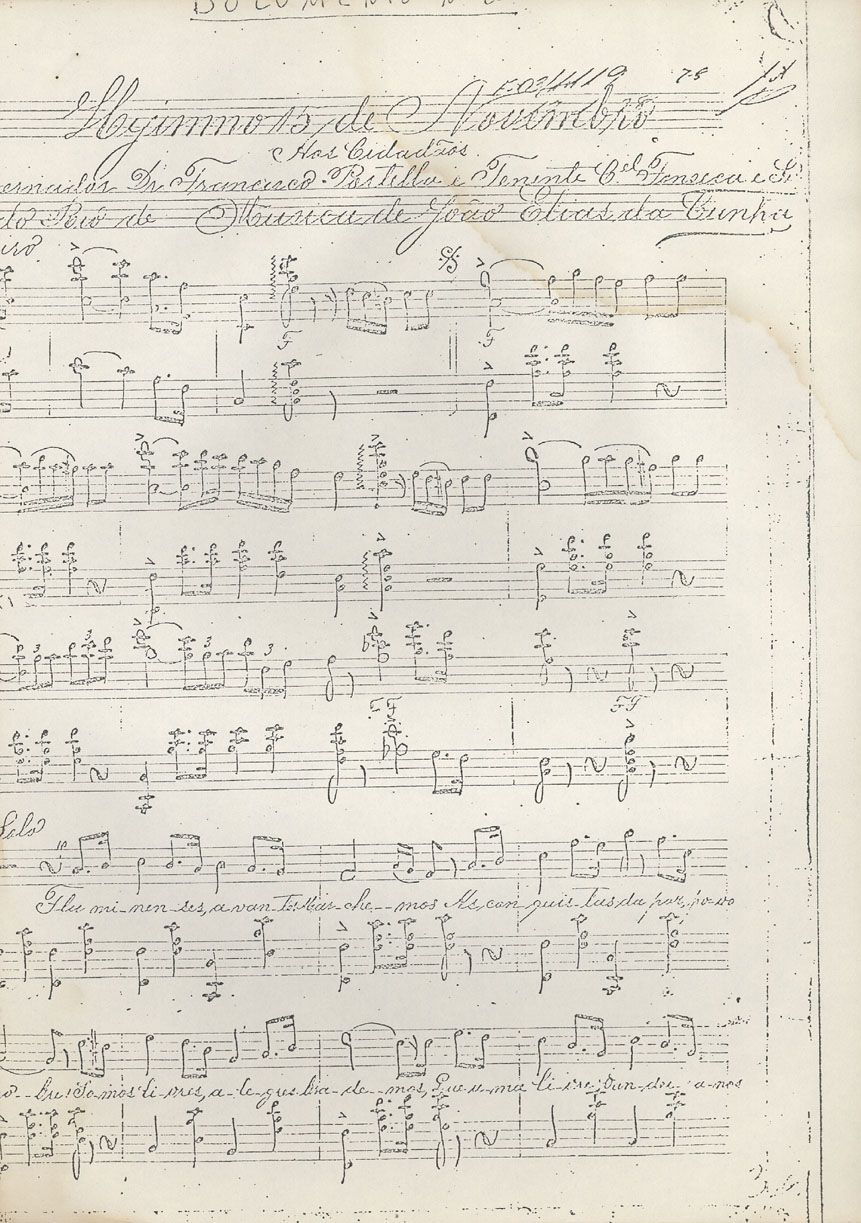 DOCUMENTO N
Hymno 15 de Novembro
Aos Cidadãos
ernador Dr. Francisco Portella e Tenente Cel. Fonseca e S
do Povo de Musica de João Elias da Cunha
iro
F F
3 3 3 3
FF
FF
Solo
Flu mi-nen-ses, a van-te! Mar-che--mos Ás con quis-tas da paz, po-vo
o--bre! So mos li-vres, a-le-gres bra-de--mos, Que u-ma li-vre ban-dei-a-nos